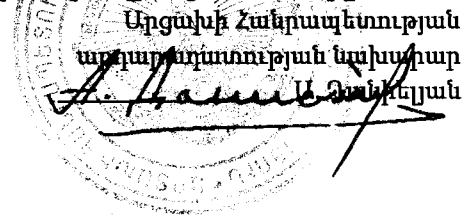 Արցախի Հանրապետության
արդարադատության նախարար
Ա. Դանիելյան